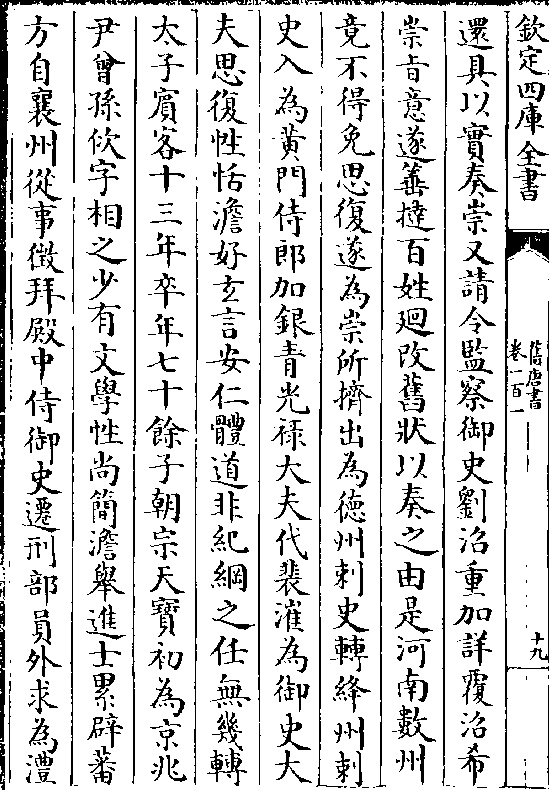 欽定四庫全書
舊唐書
卷一百一
十九
還具以實奏崇又請令監察御史劉沼重加詳覆沼希
崇㫖意遂箠撻百姓廻改舊狀以奏之由是河南數州
竟不得免思復遂為崇所擠出為德州刺史轉絳州刺
史入為黄門侍郎加銀青光禄大夫代裴漼為御史大
夫思復性恬澹好玄言安仁體道非紀綱之任無幾轉
太子賓客十三年卒年七十餘子朝宗天寶初為京兆
尹曾孫佽字相之少有文學性尚簡澹舉進士累辟蕃
方自襄州從事徵拜殿中侍御史遷刑部員外求為澧